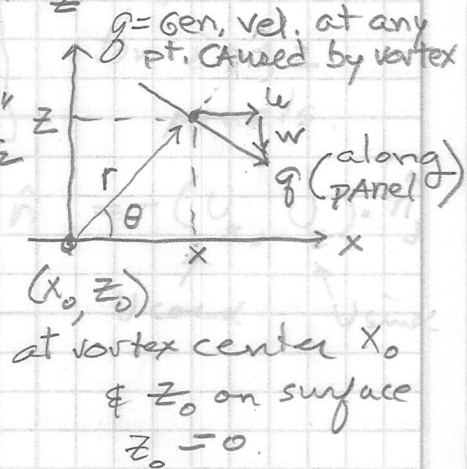 q = Gen. vel. at any
pt. CAused by vortex
z
u
w
q (along
pAnel)
r
θ
x
x
(x₀, z₀)
at vortex center x₀
& z₀ on surface
z₀ = 0.